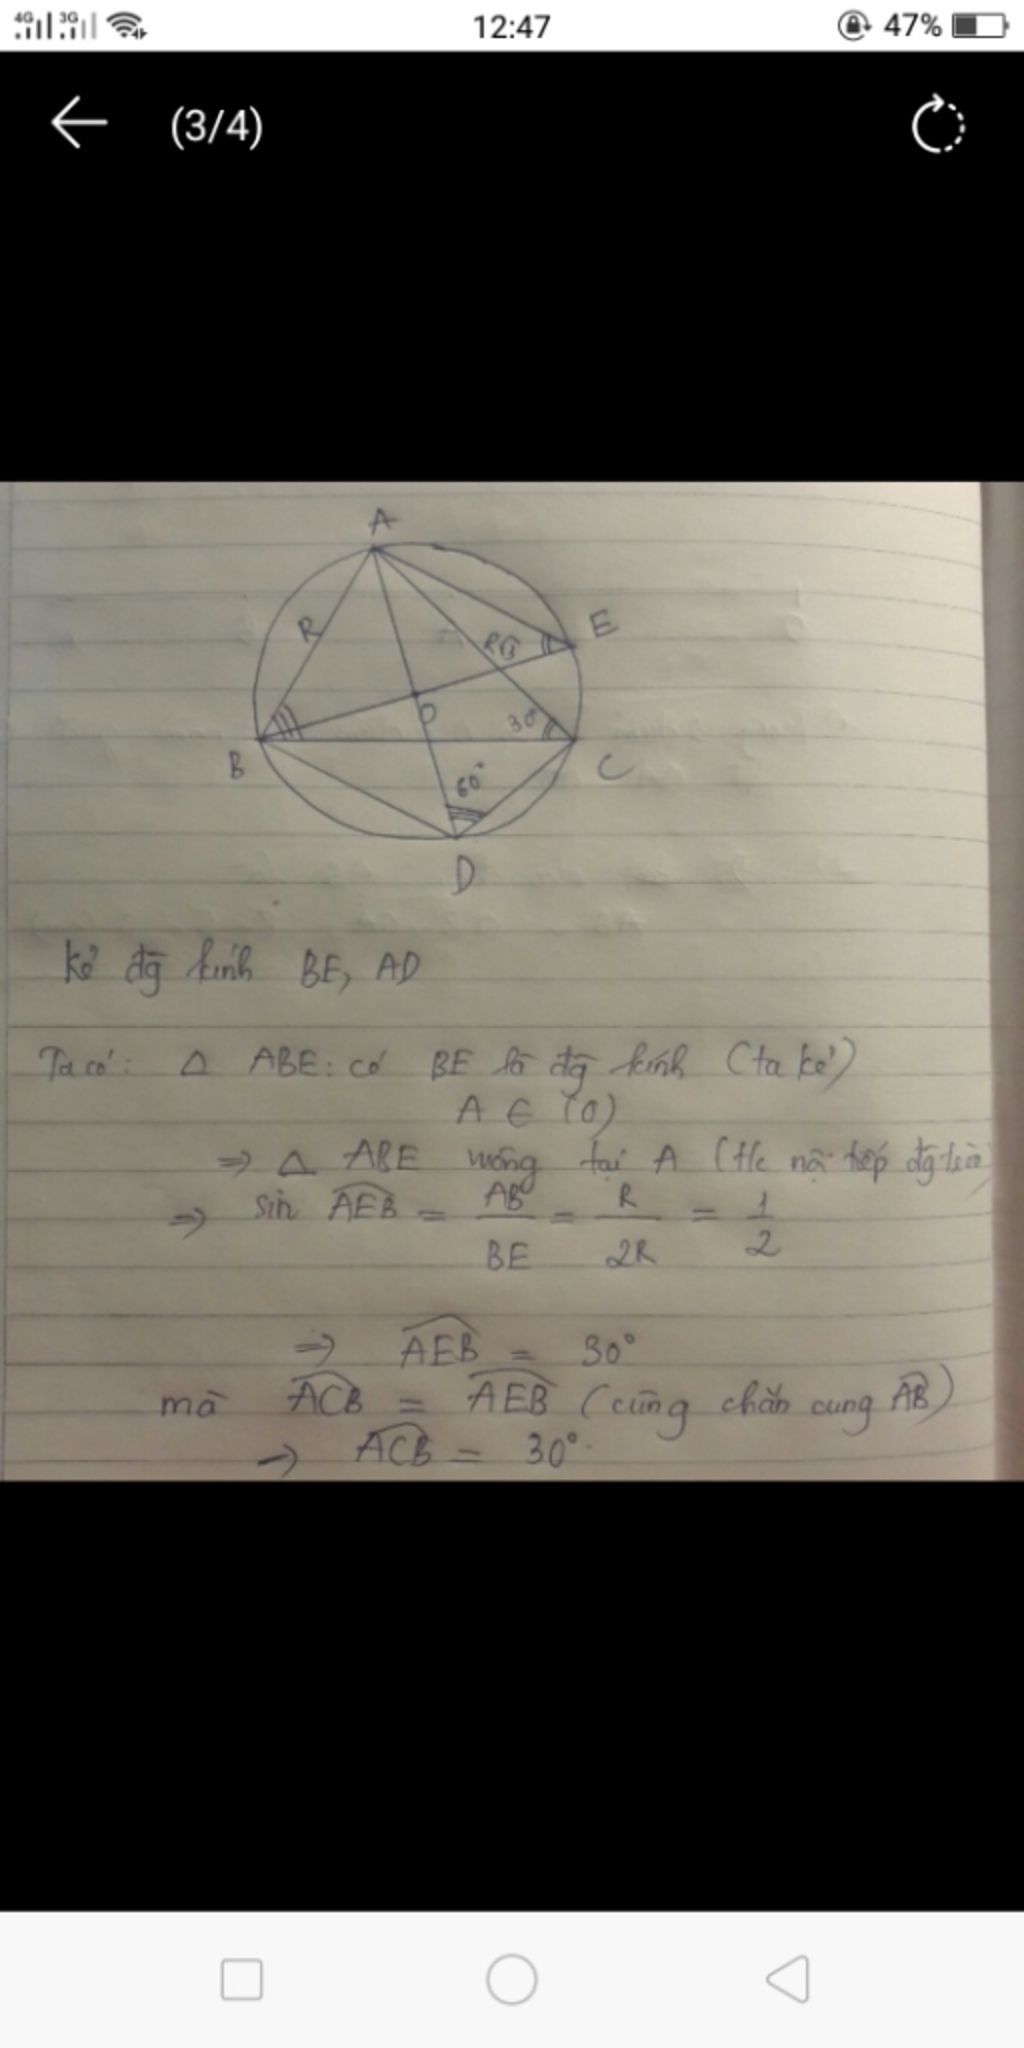 4G 3G 12:47 47%
(3/4)
A
R
R√3
E
O
30°
B
C
60°
D
Kẻ đg kính BE, AD
Ta có: Δ ABE: có BE là đg kính (ta kẻ)
A ∈ (O)
=> Δ ABE vuông tại A (t/c nội tiếp đg tròn)
=> sin AEB = AB/BE = R/2R = 1/2
=> AEB = 30°
mà ACB = AEB (cùng chắn cung AB)
-> ACB = 30°.